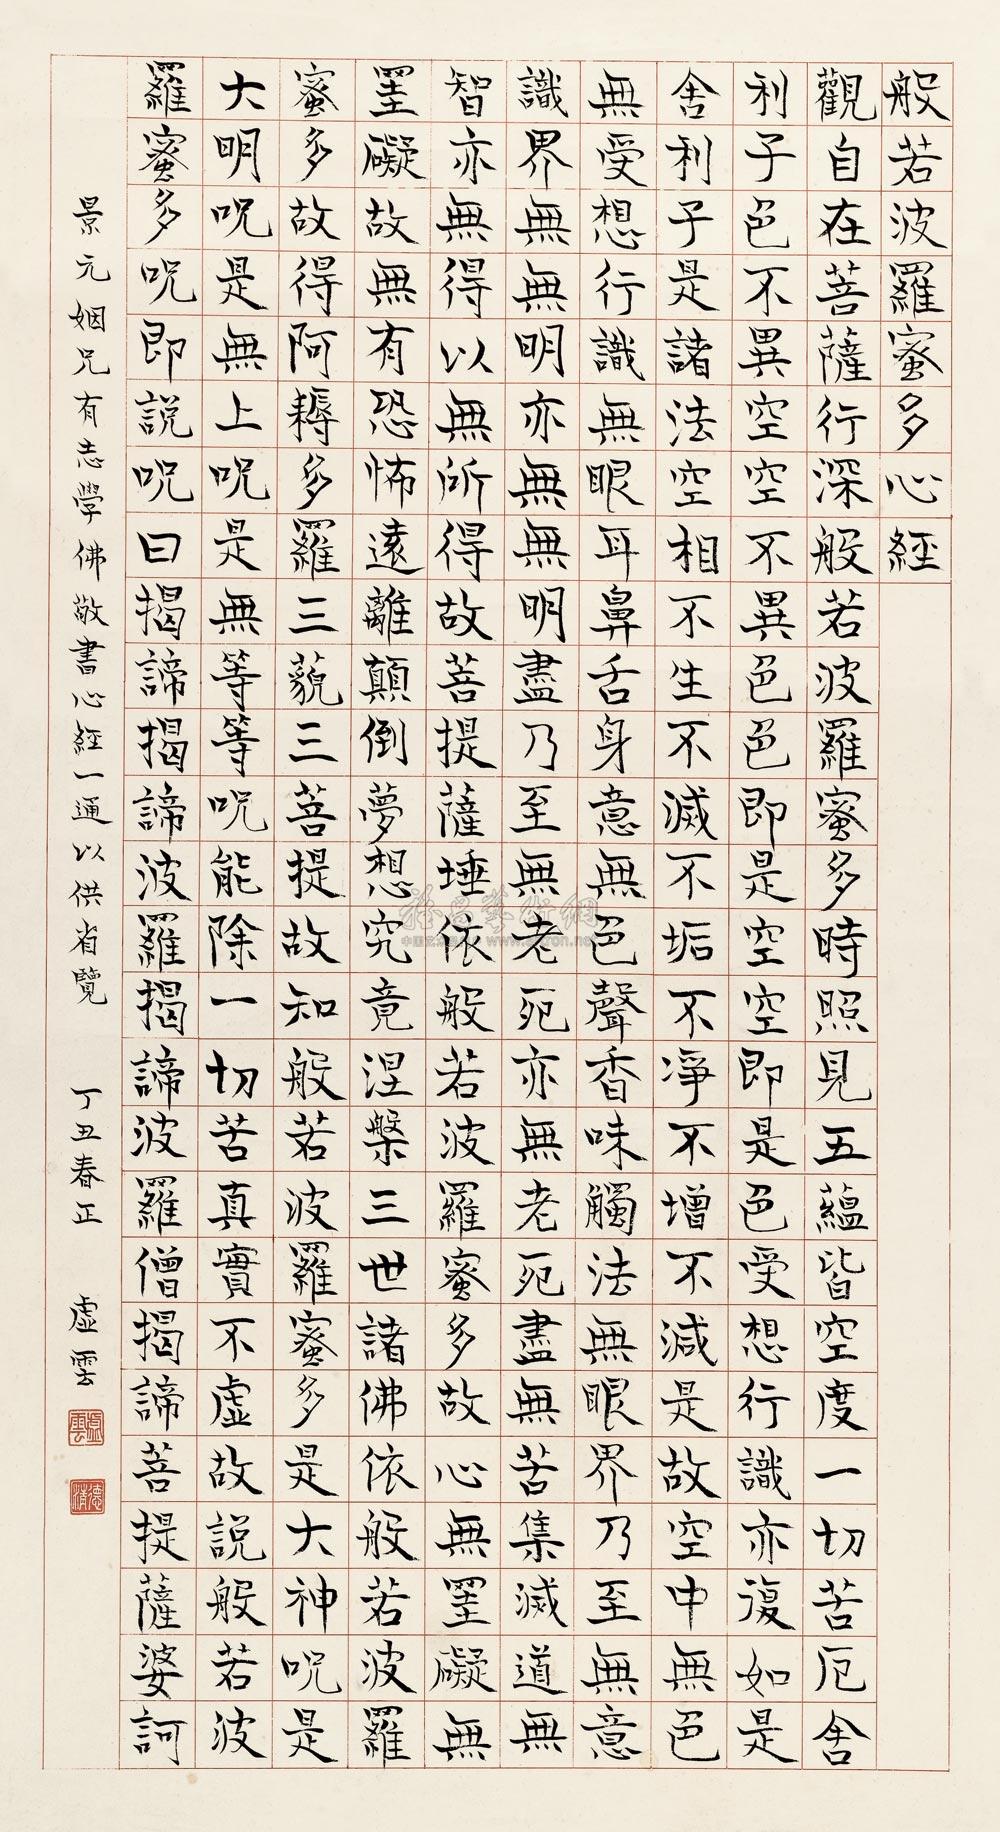 般若波羅蜜多心經
觀自在菩薩行深般若波羅蜜多時照見五蘊皆空度一切苦厄舍
利子色不異空空不異色色即是空空即是色受想行識亦復如是
舍利子是諸法空相不生不滅不垢不淨不增不減是故空中無色
無受想行識無眼耳鼻舌身意無色聲香味觸法無眼界乃至無意
識界無無明亦無無明盡乃至無老死亦無老死盡無苦集滅道無
智亦無得以無所得故菩提薩埵依般若波羅蜜多故心無罣礙無
罣礙故無有恐怖遠離顛倒夢想究竟涅槃三世諸佛依般若波羅
蜜多故得阿耨多羅三藐三菩提故知般若波羅蜜多是大神呪是
大明呪是無上呪是無等等呪能除一切苦真實不虛故說般若波
羅蜜多呪即說呪曰揭諦揭諦波羅揭諦波羅僧揭諦菩提薩婆訶
景元姻兄有志學佛敬書心經一通以供省覽 丁丑春正 虛雲
虛雲
德清
www.artron.net